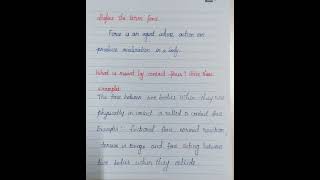 Define the term force
Force is an agent whose action can
produce acceleration in a body.
What is meant by contact force? Give three
examples
The force between two bodies when they are
physically in contact is called a contact force
Example: frictional force, normal reaction,
tension in and force acting between
two bodies when they collide.